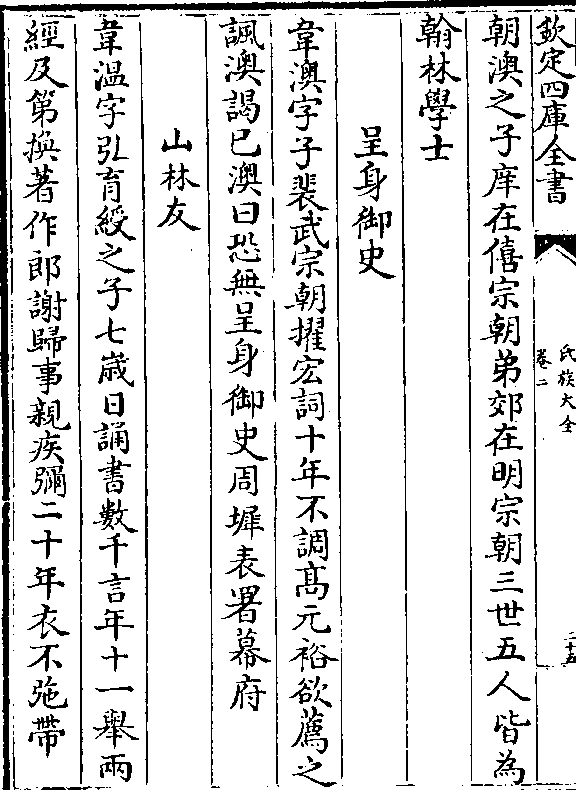 欽定四庫全書
氏族大全
卷二
二十五
朝澳之子庠在僖宗朝弟郊在明宗朝三世五人皆為
翰林學士
呈身御史
韋澳字子裴武宗朝擢宏詞十年不調髙元裕欲薦之
諷澳謁已澳曰恐無呈身御史周墀表署幕府
山林友
韋温字弘育綬之子七歳日誦書數千言年十一舉兩
經及第換著作郎謝歸事親疾彌二十年衣不弛帶